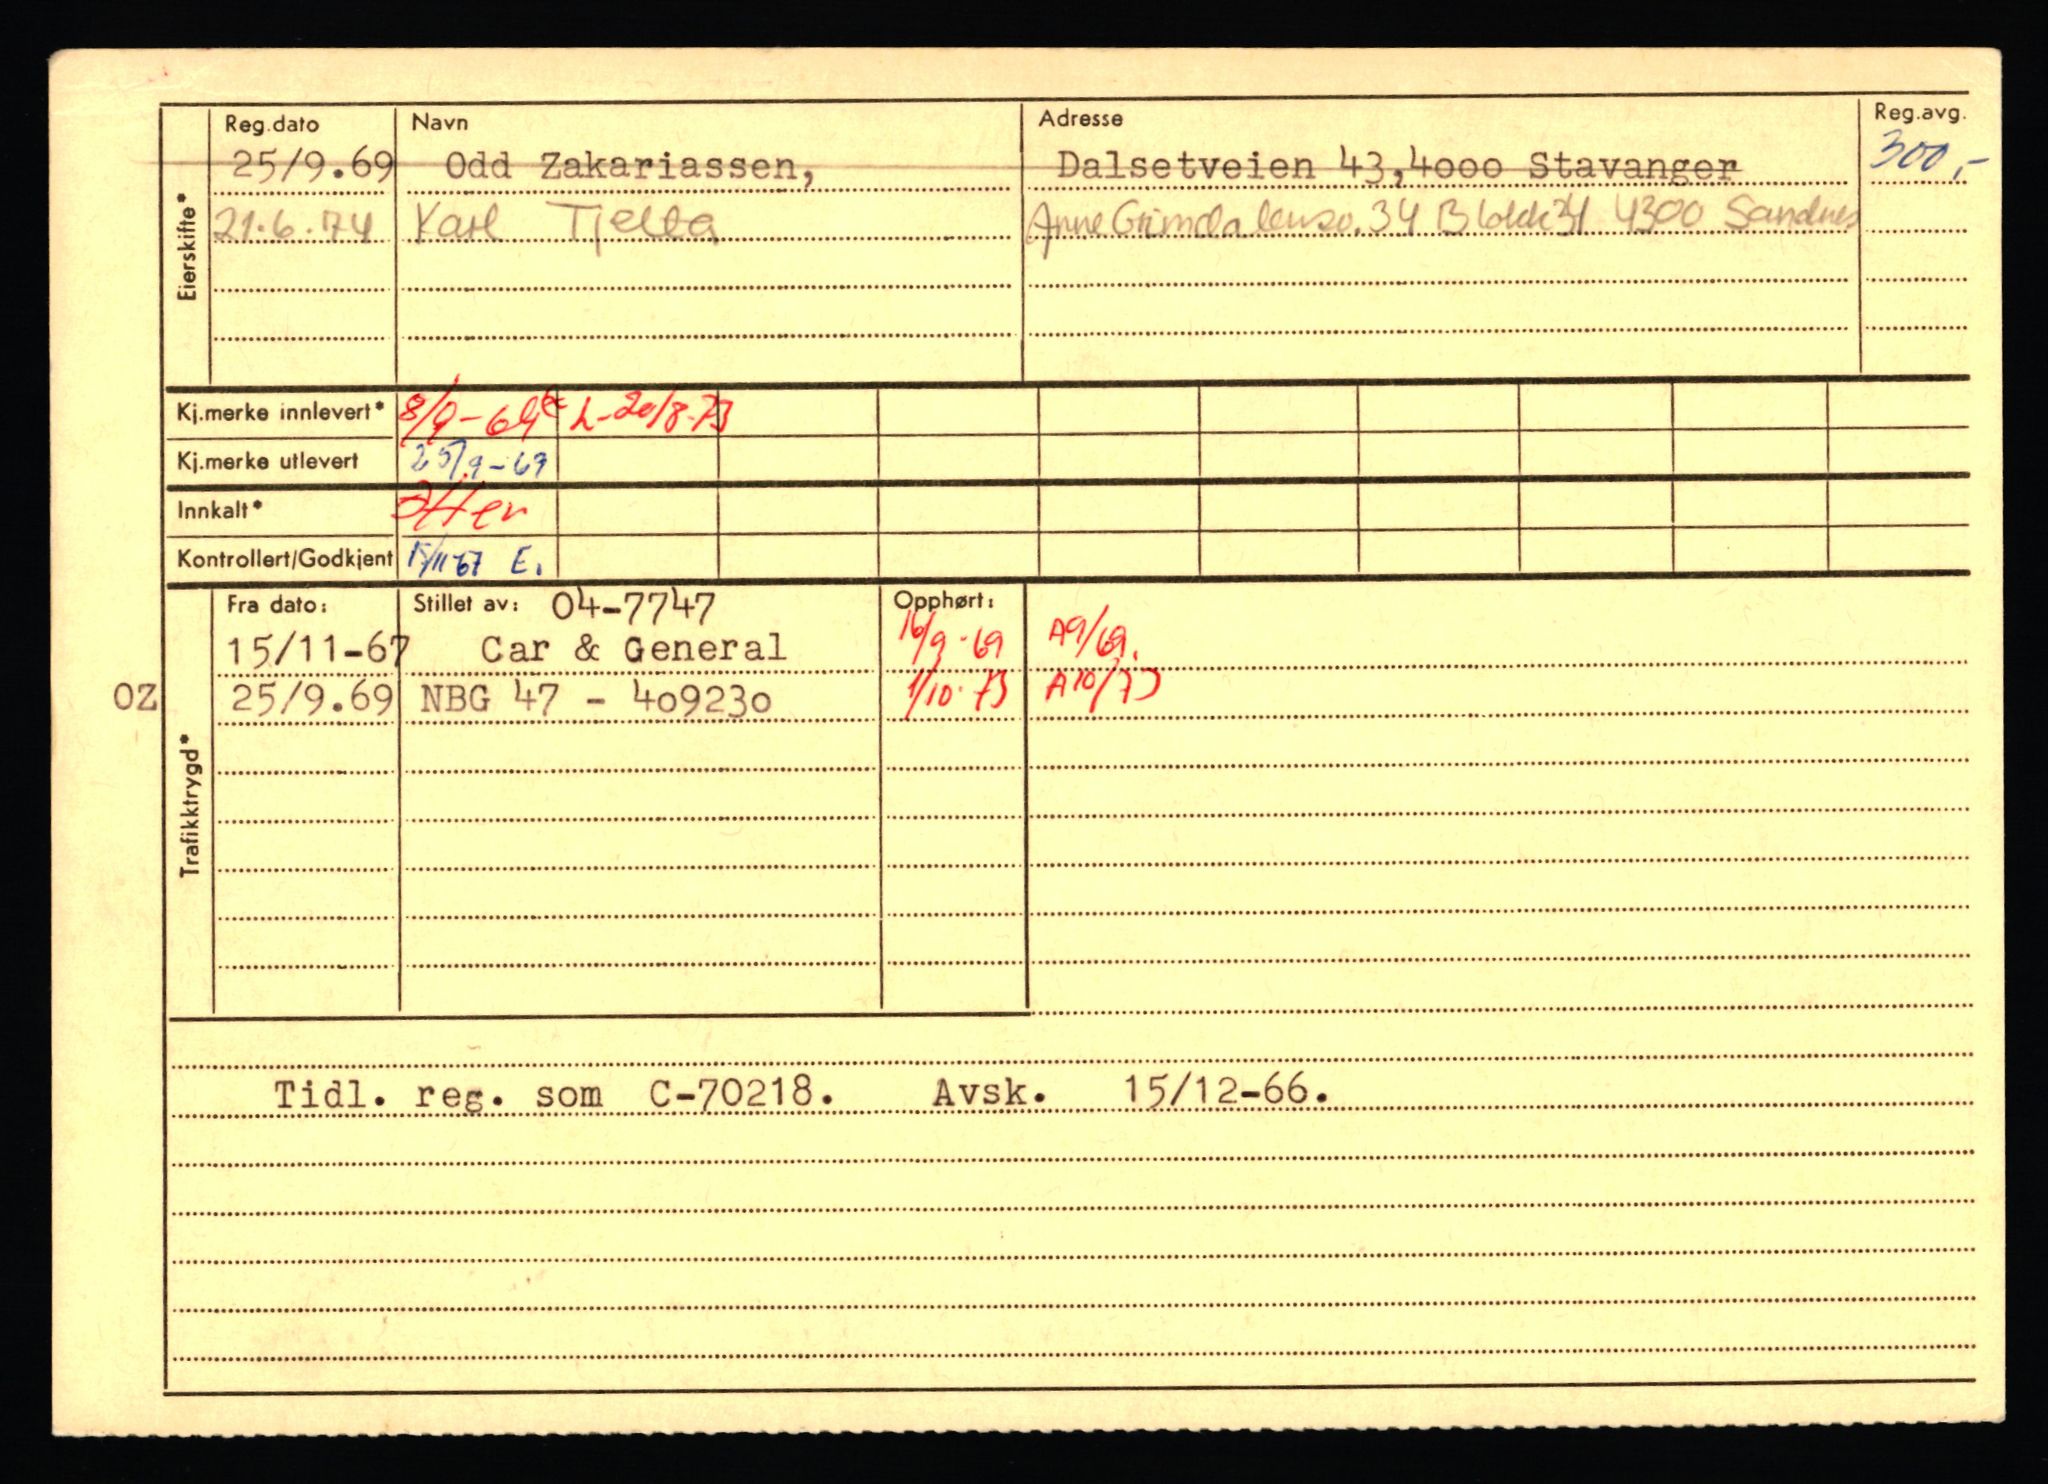 Reg.dato Navn Adresse Reg.avg.
25/9.69 Odd Zakariassen, Dalsetveien 43,4000 Stavanger 300,-
Eierskifte*
21.6.74 Karl Tjelta 34 Blokk 31 4300 Sandnes
Kj.merke innlevert* 8/9-69 L-20/8-73
Kj.merke utlevert 25/9-69
Innkalt* Etter
Kontrollert/Godkjent 15/11-67 E.
Fra dato: Stillet av: 04-7747 Opphørt:
15/11-67 Car & General 16/9-69 A9/69.
OZ 25/9.69 NBG 47 - 409230 1/10-73 A10/73
Trafikktrygd*
Tidl. reg. som C-70218. Avsk. 15/12-66.